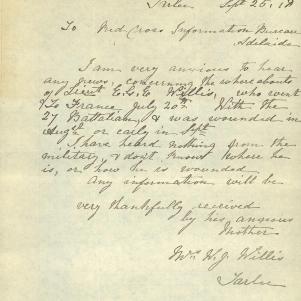 Tarlee Sept 25, 18
To Red Cross Information Bureau
Adelaide
I am very anxious to hear
any news, concerning the whereabouts
of Lieut E. G. E Willis, who went
to France, July 20th. With the
27 Battalion, & was wounded in
Augst or early in Sept
I have heard nothing from the
military, & dont know where he
is, or how he is wounded.
Any information will be
very thankfully received
by his anxious
Mother
Mrs W. J. Willis
Tarlee